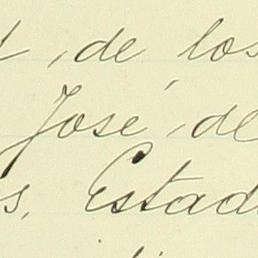 , de los
José, de
s, Estad